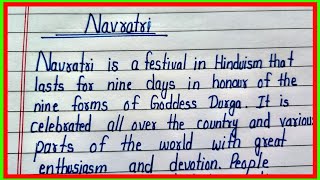 Navratri
Navratri is a festival in Hinduism that
lasts for nine days in honour of the
nine forms of Goddess Durga. It is
celebrated all over the country and various
parts of the world with great
enthusiasm and devotion. People